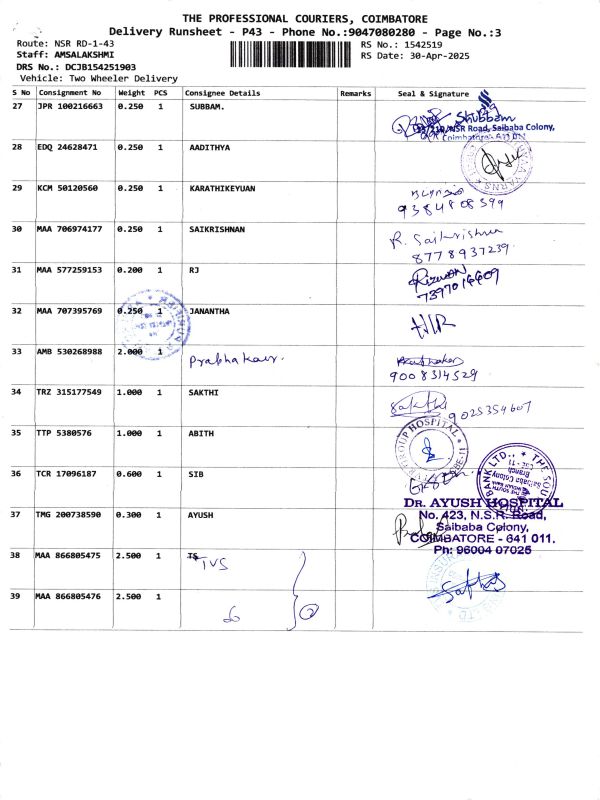 THE PROFESSIONAL COURIERS, COIMBATORE
Delivery Runsheet - P43 - Phone No.:9047080280 - Page No.:3
Route: NSR RD-1-43
RS No.: 1542519
Staff: AMSALAKSHMI
RS Date: 30-Apr-2025
DRS No.: DCJB154251903
Vehicle: Two Wheeler Delivery
S No Consignment No Weight PCS Consignee Details Remarks Seal & Signature
27 JPR 100216663 0.250 1 SUBBAM.
Shubbam
NSR Road, Saibaba Colony,
28 EDQ 24628471 0.250 1 AADITHYA
29 KCM 50120560 0.250 1 KARATHIKEYUAN
9384808399
30 MAA 706974177 0.250 1 SAIKRISHNAN
R. Saikrishnan
8778937239.
31 MAA 577259153 0.200 1 RJ
7397016609
32 MAA 707395769 0.250 1 JANANTHA
33 AMB 530268988 2.000 1 Prabhakar.
9008314529
34 TRZ 315177549 1.000 1 SAKTHI
Sakthi 9025354607
35 TTP 5380576 1.000 1 ABITH
GROUP HOSPITAL
36 TCR 17096187 0.600 1 SIB
BANK LTD., THE SOU
Saibaba Colony
Branch
37 TMG 200738590 0.300 1 AYUSH
DR. AYUSH HOSPITAL
No. 423, N.S.R. Road,
Saibaba Colony,
COIMBATORE - 641 011.
Ph: 96004 07025
38 MAA 866805475 2.500 1 TVS
39 MAA 866805476 2.500 1
2